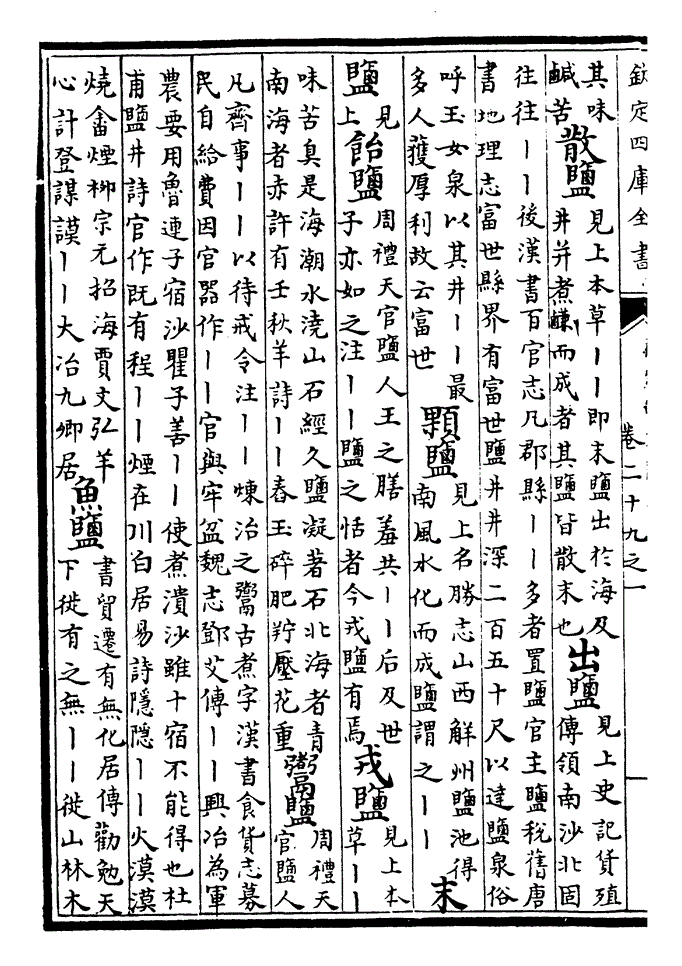 欽定四庫全書
卷二十九之一
其味
鹹苦
散鹽
見上本草丨丨即末鹽出於海及
井并煮鹻而成者其鹽皆散末也
出鹽
見上史記貨殖
傳領南沙北固
往往丨丨後漢書百官志凡郡縣丨丨多者置鹽官主鹽稅舊唐
書地理志富世縣界有富世鹽井井深二百五十尺以達鹽泉俗
呼玉女泉以其井丨丨最
多人獲厚利故云富世
顆鹽
見上名勝志山西解州鹽池得
南風水化而成鹽謂之丨丨
末
鹽
見
上
飴鹽
周禮天官鹽人王之膳羞共丨丨后及世
子亦如之注丨丨鹽之恬者今戎鹽有焉
戎鹽
見上本
草丨丨
味苦臭是海潮水澆山石經久鹽凝著石北海者青
南海者赤許有壬秋羊詩丨丨舂玉碎肥羜壓花重
鬻鹽
周禮天
官鹽人
凡齊事丨丨以待戒令注丨丨煉治之鬻古煮字漢書食貨志募
民自給費因官器作丨丨官與牢盆魏志鄧艾傳丨丨興冶為軍
農要用魯連子宿沙瞿子善丨丨使煮漬沙雖十宿不能得也杜
甫鹽井詩官作既有程丨丨煙在川白居易詩隱隱丨丨火漠漠
燒畬煙柳宗元招海賈文弘羊
心計登謀謨丨丨大冶九卿居
魚鹽
書貿遷有無化居傳勸勉天
下徙有之無丨丨徙山林木